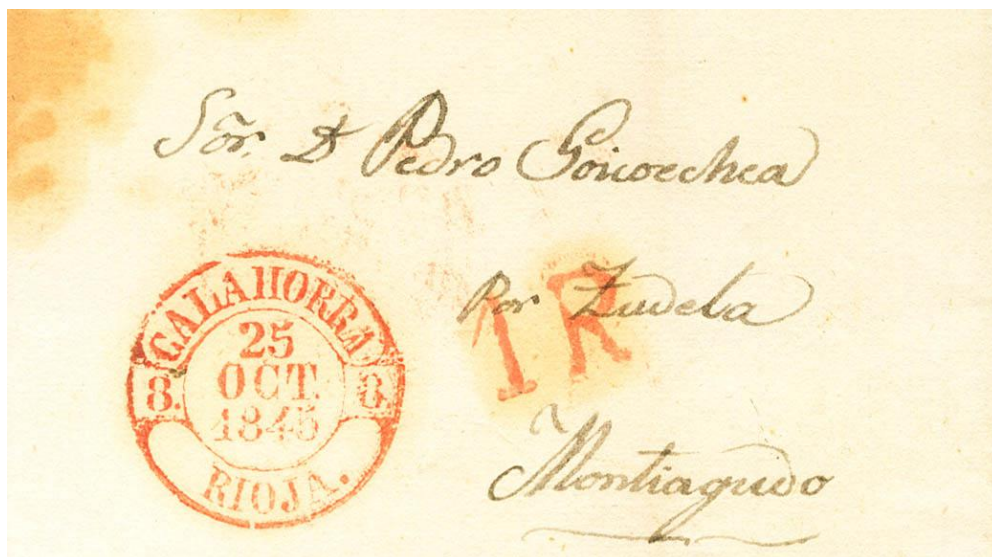 Sõr. D Pedro Goicoechea
Por Tudela
1R
Montiagudo
CALAHORRA
8. 8.
25
OCT.
1845
RIOJA.